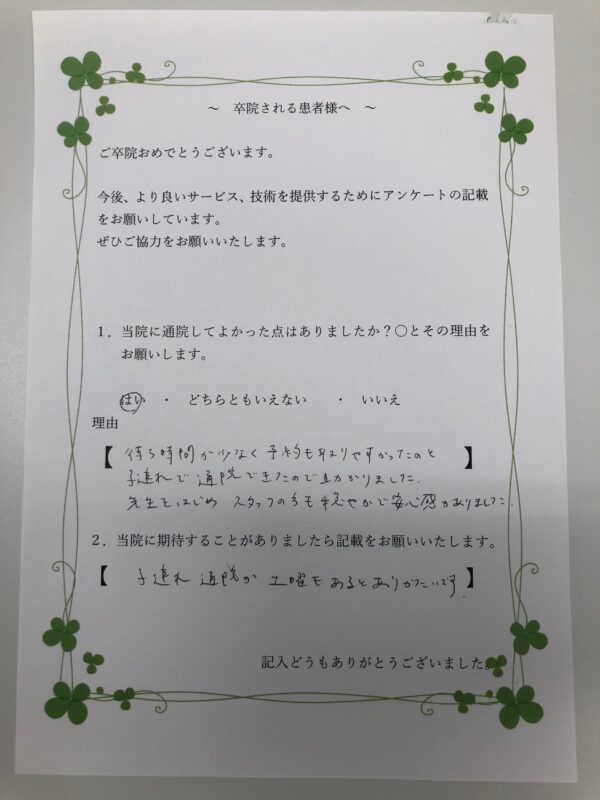 ～ 卒院される患者様へ ～
ご卒院おめでとうございます。
今後、より良いサービス、技術を提供するためにアンケートの記載
をお願いしています。
ぜひご協力をお願いいたします。
１．当院に通院してよかった点はありましたか？〇とその理由を
お願いします。
はい ・ どちらともいえない ・ いいえ
理由
【 待ち時間が少なく予約も取りやすかったのと 】
子連れで通院できたので助かりました.
先生をはじめ スタッフの方も穏やかで安心感がありました.
２．当院に期待することがありましたら記載をお願いいたします。
【 子連れ通院が土曜もあるとありがたいです. 】
記入どうもありがとうございました。